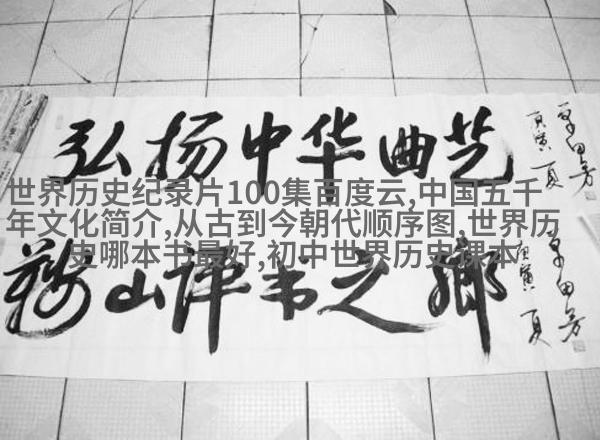 弘扬中华曲艺
庚寅夏 单田芳
世界历史纪录片100集百度云,中国五千
年文化简介,从古到今朝代顺序图,世界历
史哪本书最好,初中世界历史课本
鞍山评书之乡
庚寅夏 单田芳